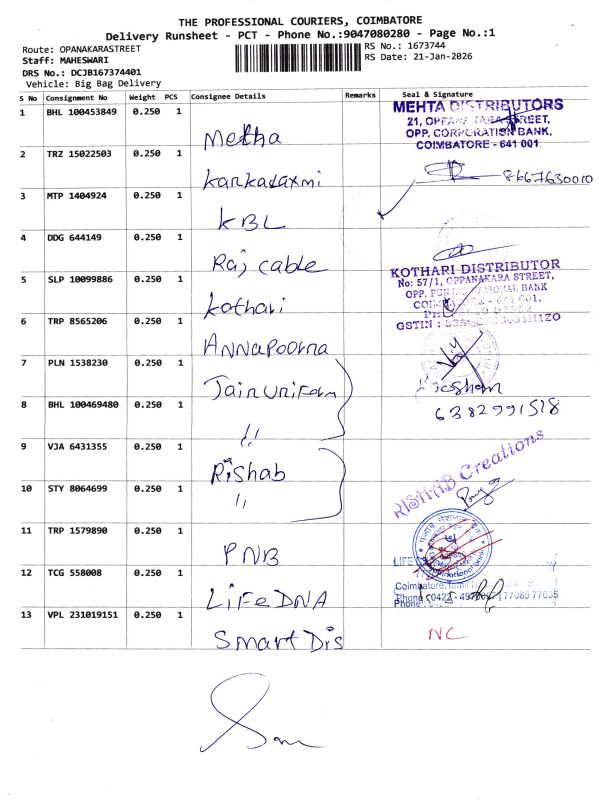 THE PROFESSIONAL COURIERS, COIMBATORE
Delivery Runsheet - PCT - Phone No.:9047080280 - Page No.:1
Route: OPANAKARASTREET
RS No.: 1673744
Staff: MAHESWARI
RS Date: 21-Jan-2026
DRS No.: DCJB167374401
Vehicle: Big Bag Delivery
S No Consignment No Weight PCS Consignee Details Remarks Seal & Signature
1 BHL 100453849 0.250 1 Metha
MEHTA DISTRIBUTORS
21, OPPANAKARA STREET,
OPP. CORPORATION BANK,
COIMBATORE - 641 001.
2 TRZ 15022503 0.250 1 Kankalaxmi
8667630010
3 MTP 1404924 0.250 1 KBL
4 DDG 644149 0.250 1 Raj cable
5 SLP 10099886 0.250 1 Kothari
KOTHARI DISTRIBUTOR
No: 57/1, OPPANAKARA STREET,
OPP. NATIONAL BANK
641 001.
GSTIN :
6 TRP 8565206 0.250 1 Annapoorna
7 PLN 1538230 0.250 1 Jain Uniform
6382991518
8 BHL 100469480 0.250 1 "
9 VJA 6431355 0.250 1 Rishab
RISHAB Creations
10 STY 8064699 0.250 1 "
11 TRP 1579890 0.250 1 PNB
12 TCG 558008 0.250 1 Life DNA
LIFE
Coimbatore, Tamil
Phone : 0422 - 77085 77055
Phone
13 VPL 231019151 0.250 1 Smart Dis
NC